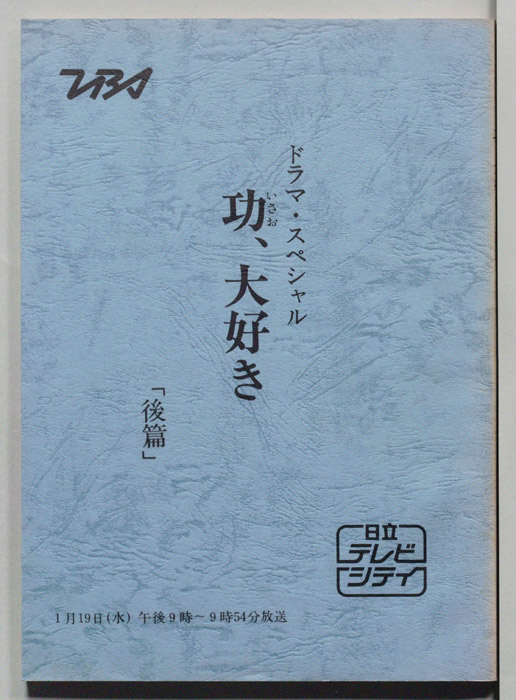 TBS
ドラマ・スペシャル
いさお
功、大好き
「後篇」
日立
テレビ
シティ
1月19日(水) 午後9時〜9時54分放送